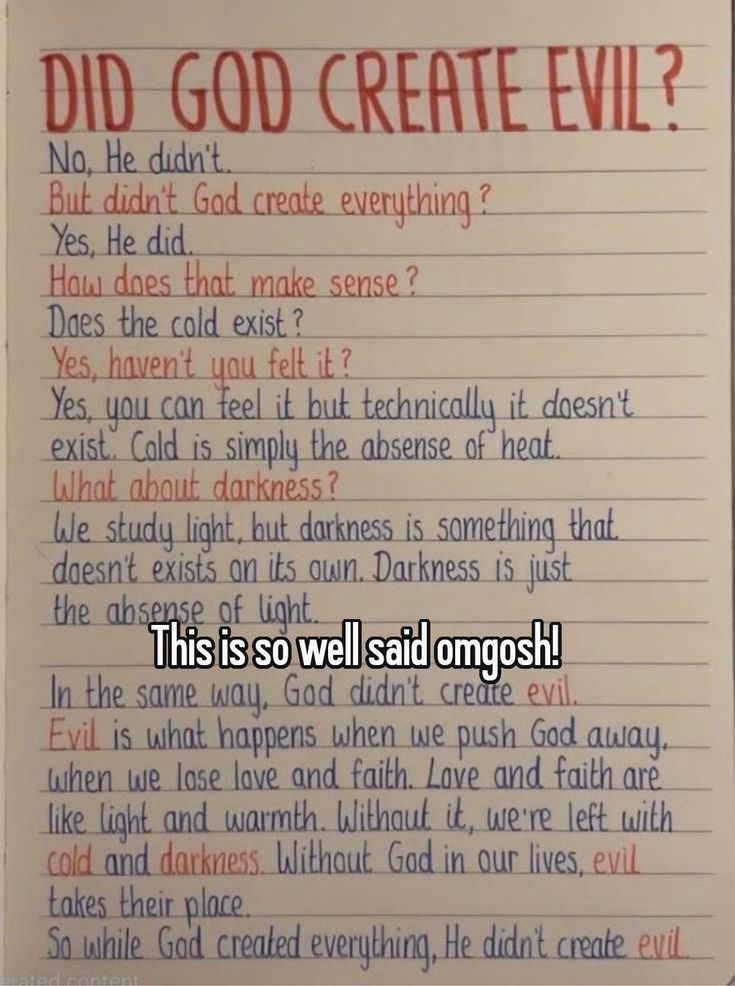 DID GOD CREATE EVIL?
No, He didn't.
But didn't God create everything?
Yes, He did.
How does that make sense?
Does the cold exist?
Yes, haven't you felt it?
Yes, you can feel it but technically it doesn't
exist. Cold is simply the absense of heat.
What about darkness?
We study light, but darkness is something that
doesn't exists on its own. Darkness is just
the absense of light.
This is so well said omgosh!
In the same way, God didn't create evil.
Evil is what happens when we push God away,
when we lose love and faith. Love and faith are
like light and warmth. Without it, we're left with
cold and darkness. Without God in our lives, evil
takes their place.
So while God created everything, He didn't create evil.
erated content